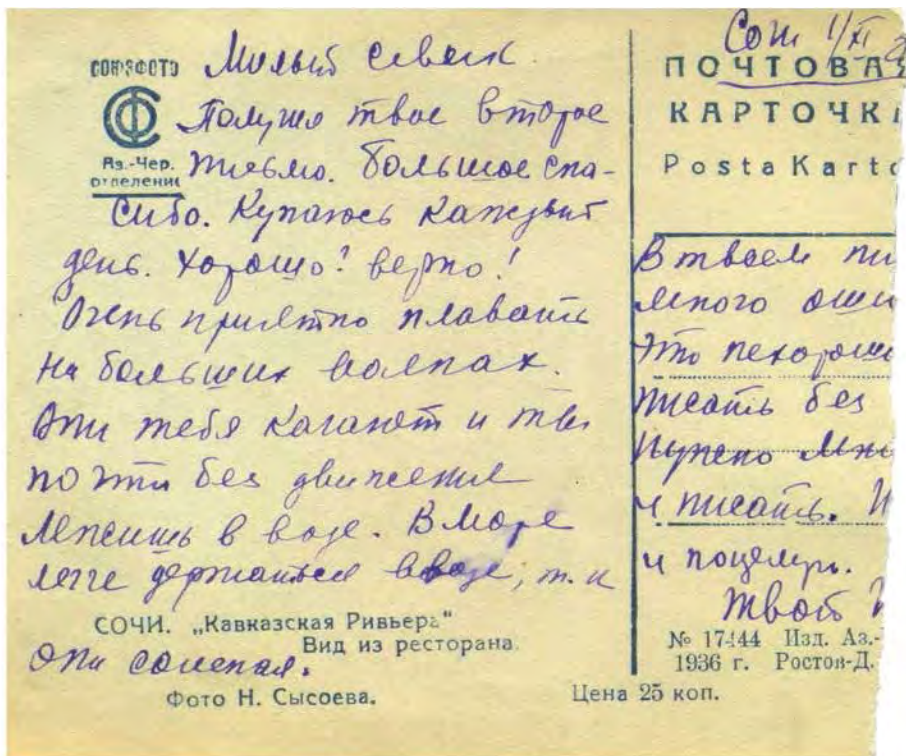 СОЮЗФОТО
Аз.-Чер.
отделение
Милый Севеik
Получил твое второе
письмо. Большое спа-
сибо. Купаюсь каждый
день. Хорошо! верно!
Очень приятно плавать
на больших волнах.
Они тебя качают и ты
почти без движения
лежишь в воде. В море
легче держаться в воде, т.к
она соленая.
СОЧИ. „Кавказская Ривьера"
Вид из ресторана.
Фото Н. Сысоева.
Сочи 1/XI
ПОЧТОВАЯ
КАРТОЧК
Posta Karto
В твоем пи
много оши
Это нехорошо
писать без
Нужно мно
и писать.
и поцелуи.
Твой
№ 17444 Изд. Аз.-
1936 г. Ростов-Д.
Цена 25 коп.